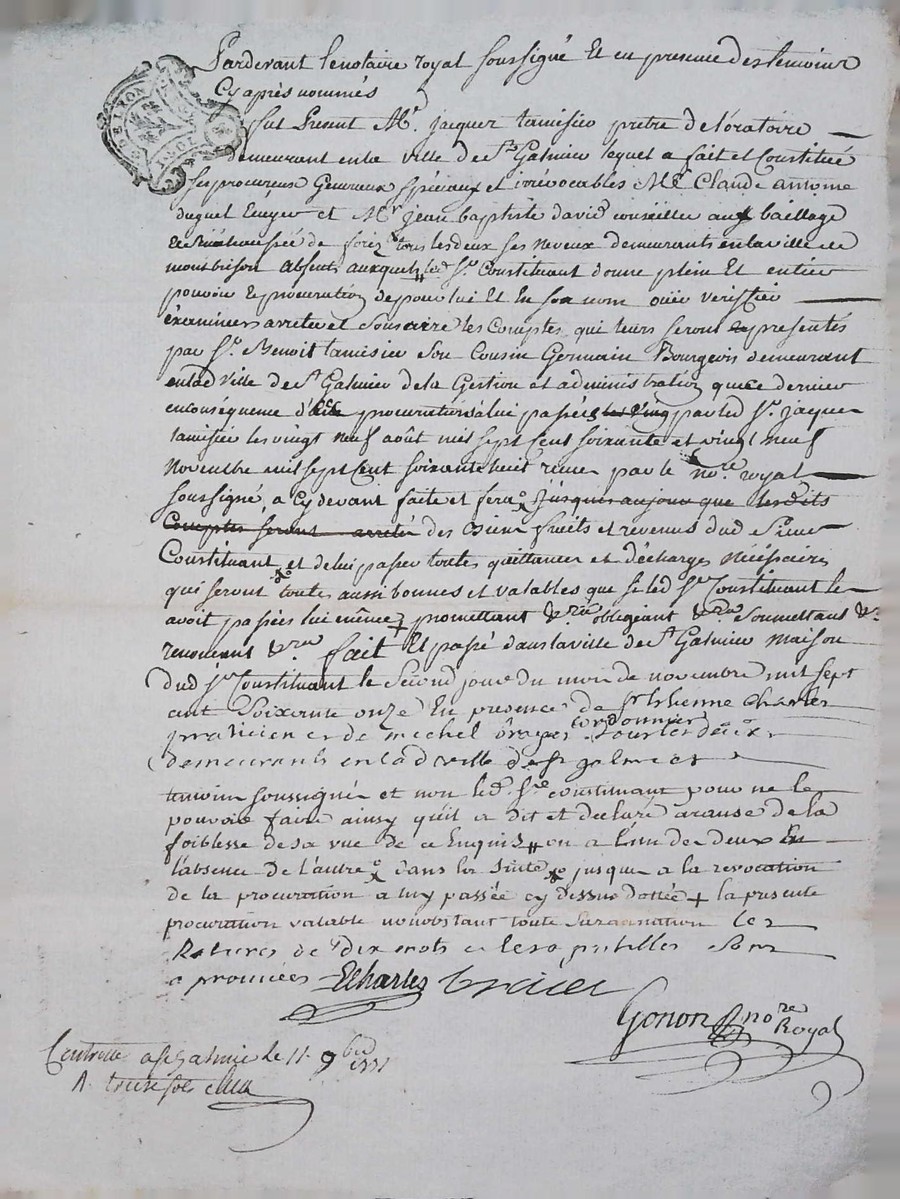 Pardevant le notaire royal soussigné Et en presence des temoins
Cy après nommés
fut Present Mr. jacques tamisier pretre de l'oratoire
demeurant en la ville de St Galmier lequel a fait et Constitué
ses procureurs Generaux spéciaux et irrévocables Mre Claude antoine
duguet Ecuyer et Mr jean baptiste david conseiller aux bailliage
de forez tous les deux ses neveux demeurants en la ville de
montbrison absents auxquels led Sr. Constituant donne plein Et entier
pouvoir de pour lui Et En son nom ouir verifier
éxaminer arreter et Souscrire les Comptes qui leurs seront presentés
par Sr. Benoit tamisier son Cousin Germain Bourgeois demeurant
en lad ville de St Galmier de la Gestion et administration que ce dernier
en conséquence d procurations a lui passées les vingt par led Sr. jacques
tamisier les vingt neuf août mil sept cent soixante et vingt neuf
Novembre mil sept Cent soixante huit reçues par le nore. royal
soussigné, a cy devant faite et fera jusques aujour que lesdits
Comptes seront arretés des biens fruits et revenus dud Sieur
Constituant, et de lui passer toutes quittances et décharges nécessaires
qui seront toutes aussi bonnes et valables que si led Sr Constituant les
avoit passées lui même + promettant &ra obligeant &ra Soumettant &a.
renoncant &ra fait Et passé dans la ville de St Galmier maison
dud Sr Constituant le Second jour du mois de novembre mil sept
cent Soixante onze En presence de Sr Ethienne Charles
praticien et de michel cordonnier tous les deux
demeurants en lad ville de st galmier
temoins soussignés et non led. Sr constituant pour ne le
pouvoir faire ainsy qu'il a dit et declaré a cause de la
foiblesse de sa vue de ce Enquis // ou a l'un des deux En
l'absence de l'autre dans la suite jusques a la revocation
de la procuration a luy passée cy dessus dattée + la presente
procuration valable nonobstant toute surannation les
Ratures de dix mots et les apostilles sont
aprouvées ECharles
Gonon nore Royal
Controllé a St Galmier le 11. 9bre 1771
R. treize sols